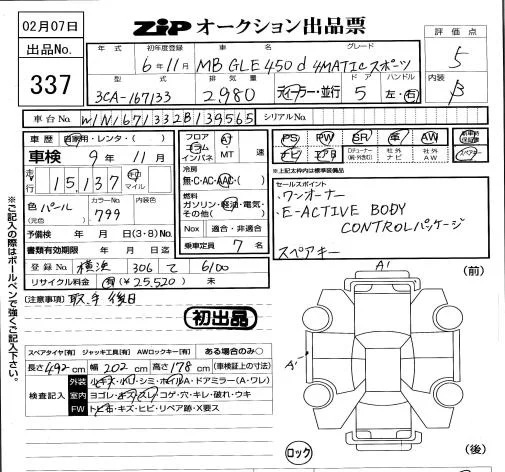 02月07日
ZIP オークション出品票
出品No.
337
評価点
5
内装
B
年式 初年度登録 車名 グレード
6年11月 MB GLE450d 4MATICスポーツ
型式 排気量 ドア ハンドル
3CA-167133 2,980 ディーラー・並行 5 左・右
車台No. W1N1671332B139565 シリアルNo.
車歴 自家用・レンタ・( )
車検 9年 11月
走行 15,137 km マイル
色 パール (元色) カラーNo. 799 内装色
予備検 年 月 日(3・8)No.
書類有効期限 年 月 日迄
登録No. 横浜 306 て 6100
リサイクル料金 有(¥25,520) 未
フロア コラム インパネ AT MT 速
冷房 無・C・AC・AAC・( )
燃料 ガソリン・軽油・電気・その他( )
Nox 適合・非適合
乗車定員 7 名
PS PW SR 革 AW
ナビ エアB Dチューナー 社外ナビ 社外AW スペアキー
*上記太枠内は標準装備品
セールスポイント
・ワンオーナー
・E-ACTIVE BODY
CONTROLパッケージ
スペアキー
[注意事項] 取、手 後日
初出品
スペアタイヤ[有] ジャッキ工具[有] AWロックキー[有] ある場合のみ○
長さ492cm 幅202cm 高さ178cm (車検証上の寸法)
検査記入
外装 小キズ・小凹・シミ・ホイルA・ドアミラー(A・ワレ)
室内 ヨゴレ・キズ・スレ・コゲ・穴・キレ・破れ・ウキ
FW トビ石・キズ・ヒビ・リペア跡・X要ス
※ご記入の際はボールペンで強くご記入下さい。
(前)
A1
A1
ロック
(後)